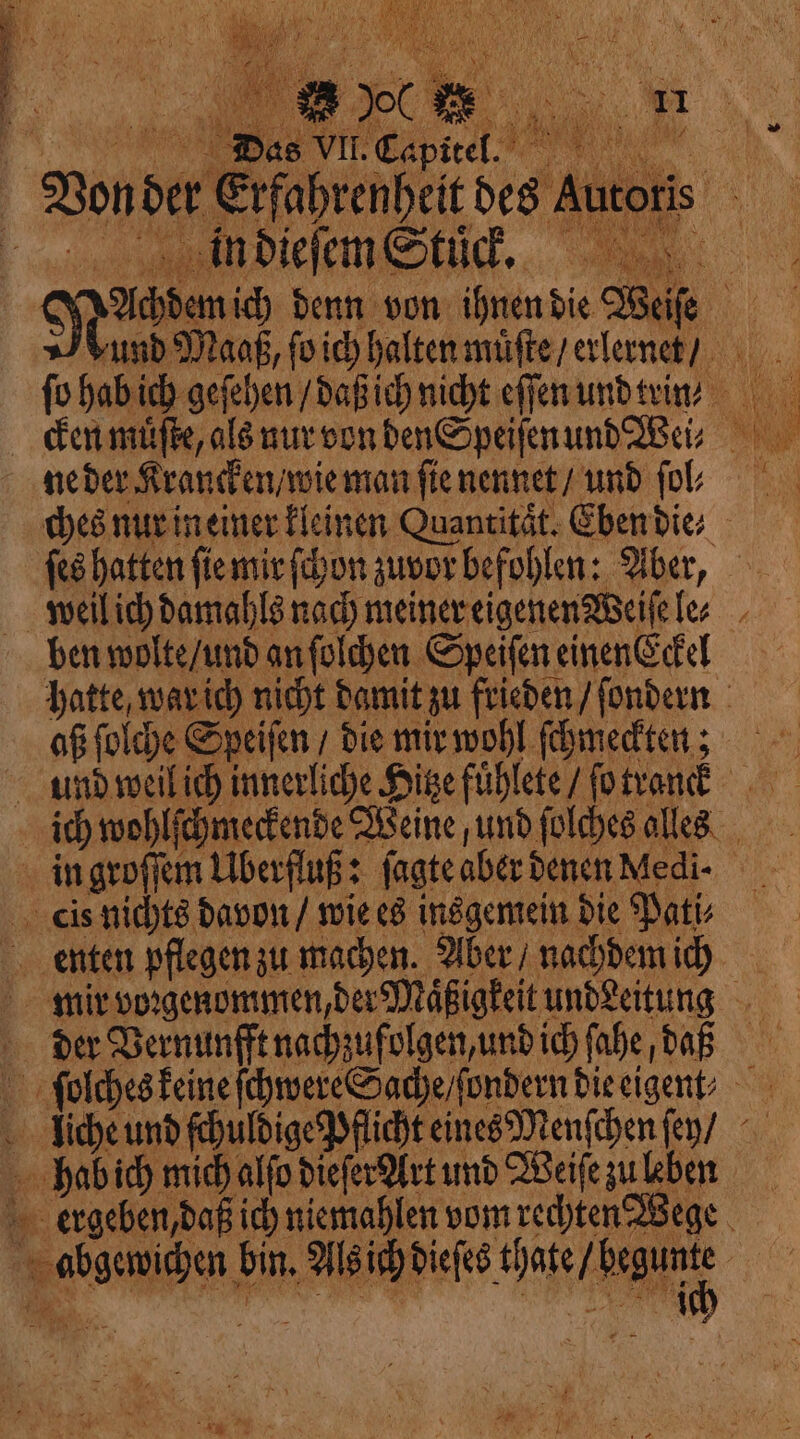 )o( 11
Das VII. Capitel.
Von der Erfahrenheit des Autoris
in dieſem Stuͤck.
NAchdem ich denn von ihnen die Weiſe
und Maaß, ſo ich halten muͤſte / erlernet /
ſo hab ich geſehen / daß ich nicht eſſen und trin⸗
cken muͤſte, als nur von den Speiſen und Wei⸗
ne der Krancken / wie man ſie nennet / und ſol⸗
ches nur in einer kleinen Quantitaͤt. Eben die⸗
ſes hatten ſie mir ſchon zuvor befohlen: Aber,
weil ich damahls nach meiner eigenen Weiſe le⸗
ben wolte / und an ſolchen Speiſen einen Eckel
hatte, war ich nicht damit zu frieden / ſondern
aß ſolche Speiſen / die mir wohl ſchmeckten;
und weil ich innerliche Hitze fuͤhlete / ſo tranck
ich wohlſchmeckende Weine, und ſolches alles
in groſſem Uberfluß: ſagte aber denen Medi-
cis nichts davon / wie es insgemein die Pati⸗
enten pflegen zu machen. Aber / nachdem ich
mir vorgenommen, der Maͤßigkeit und Leitung
der Vernunfft nachzufolgen, und ich ſahe, daß
ſolches keine ſchwere Sache / ſondern die eigent⸗
liche und ſchuldige Pflicht eines Menſchen ſey /
hab ich mich alſo dieſer Art und Weiſe zu leben
ergeben, daß ich niemahlen vom rechten Wege
abgewichen bin. Als ich dieſes thate / begunte
ich